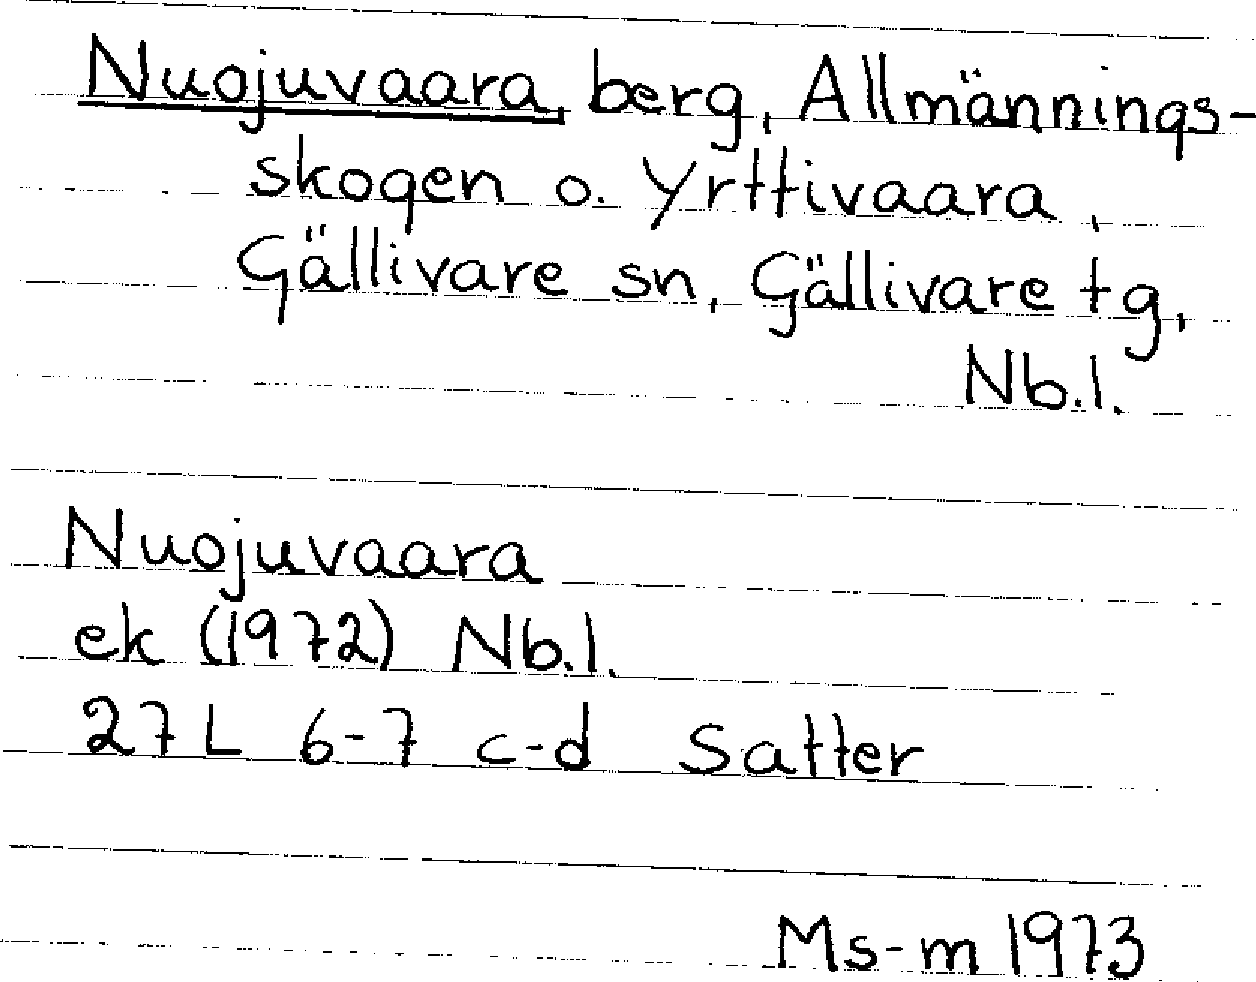 Nuojuvaara, berg, Allmännings-
skogen o. Yrttivaara,
Gällivare sn, Gällivare tg,
Nb.l.
Nuojuvaara
ek (1972) Nb.l.
27L 6-7 c-d Satter
Ms-m 1973